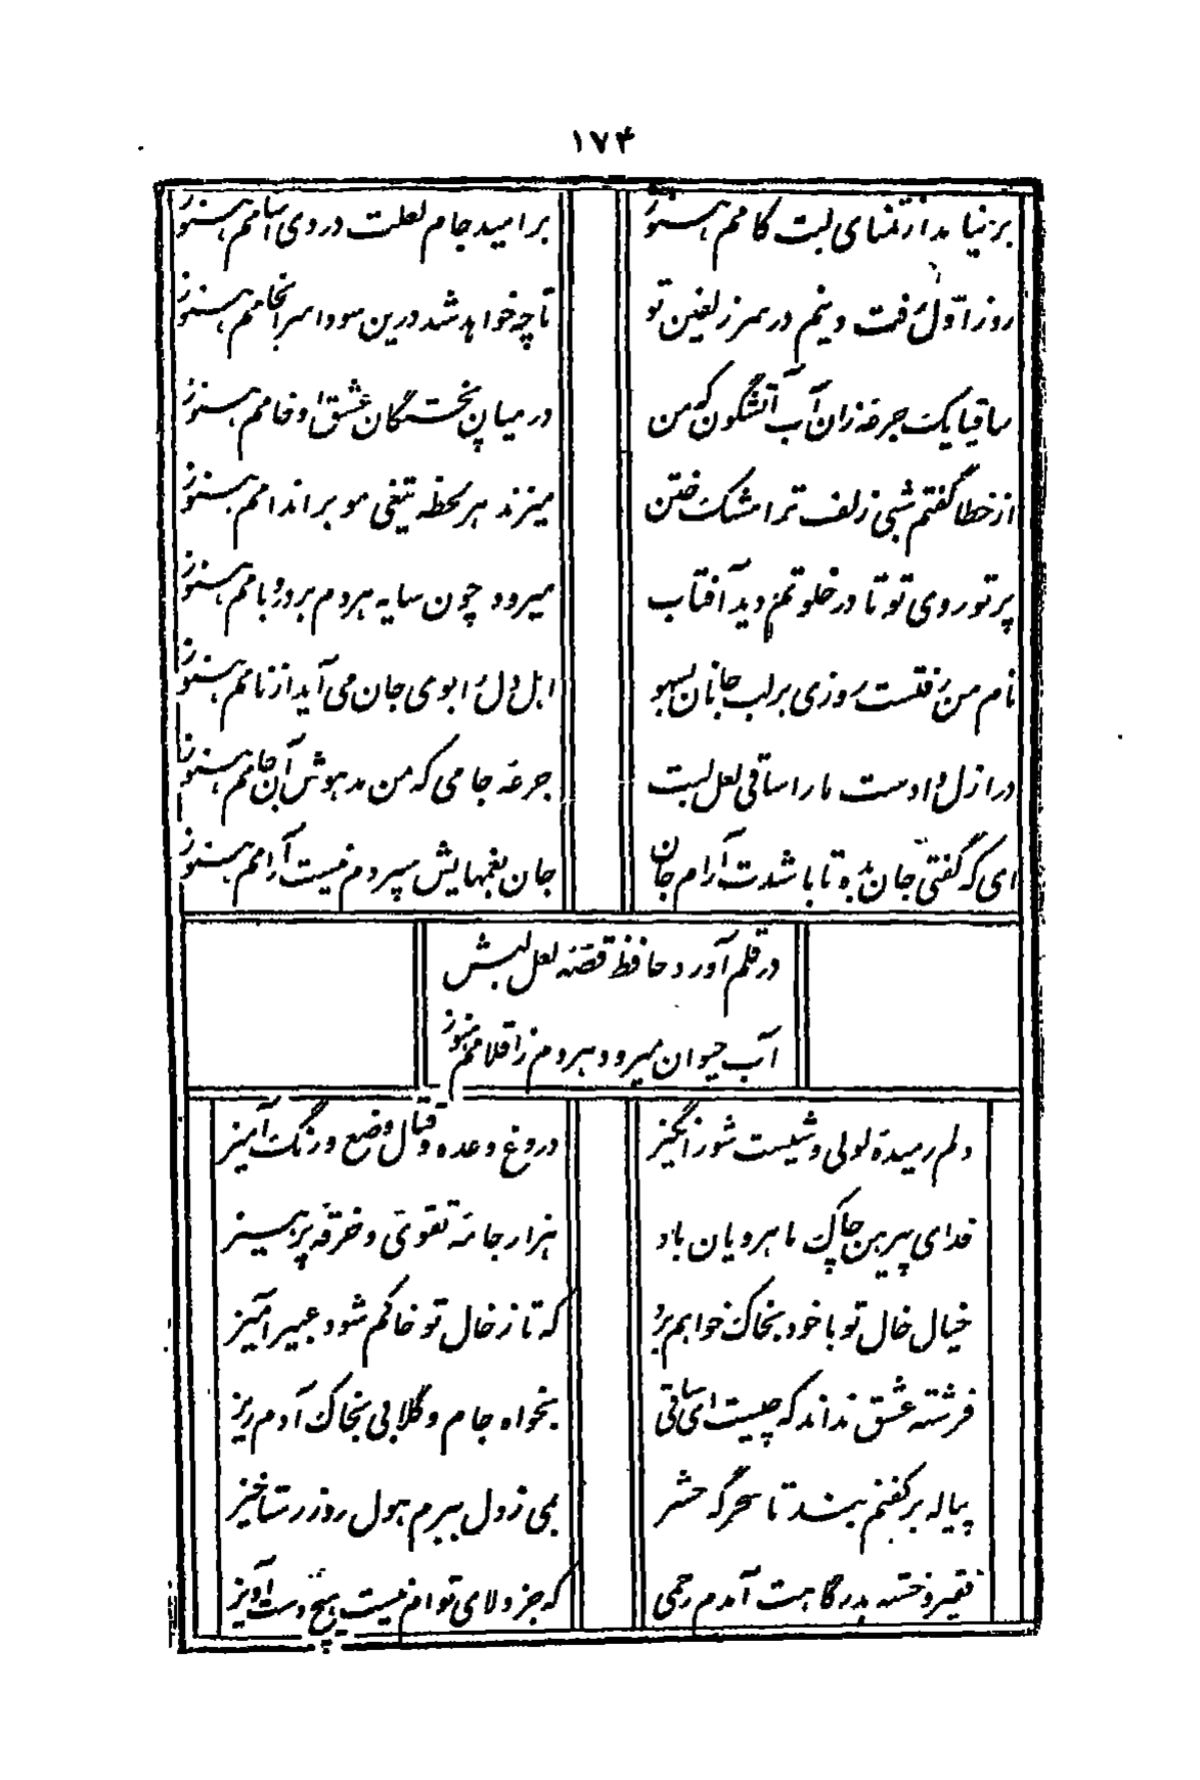 ۱۷۴
برنیامد از تمنای لبت کامم هنوز
بر امید جام لعلت دردی آشامم هنوز
روز اول رفت دینم در سر زلفین تو
تا چه خواهد شد درین سودا سرانجامم هنوز
ساقیا یک جرعه زان آب آتشگون که من
در میان پختگان عشق او خامم هنوز
از خطا گفتم شبی زلف ترا مشک ختن
میزند هر لحظه تیغی مو بر اندامم هنوز
پرتو روی تو تا در خلوتم دید آفتاب
میرود چون سایه هردم بر در و بامم هنوز
نام من رفتست روزی بر لب جانان بسهو
اهل دل را بوی جان می آید از نامم هنوز
در ازل دادست ما را ساقی لعل لبت
جرعه جامی که من مدهوش آن جامم هنوز
ای که گفتی جان بده تا باشدت آرام جان
جان بغمهایش سپردم نیست آرامم هنوز
در قلم آورد حافظ قصه لعل لبش
آب حیوان میرود هردم ز اقلامم هنوز
دلم رمیده لولی وشیست شورانگیز
دروغ وعده و قتال وضع و رنگ آمیز
فدای پیرهن چاک ماهرویان باد
هزار جامه تقوی و خرقه پرهیز
خیال خال تو با خود بخاک خواهم برد
که تا ز خال تو خاکم شود عبیر آمیز
فرشته عشق نداند که چیست ای ساقی
بخواه جام و گلابی بخاک آدم ریز
پیاله بر کفنم بند تا سحرگه حشر
بمی ز دل ببرم هول روز رستاخیز
فقیر و خسته بدرگاهت آمدم رحمی
که جز ولای توام نیست هیچ دست آویز